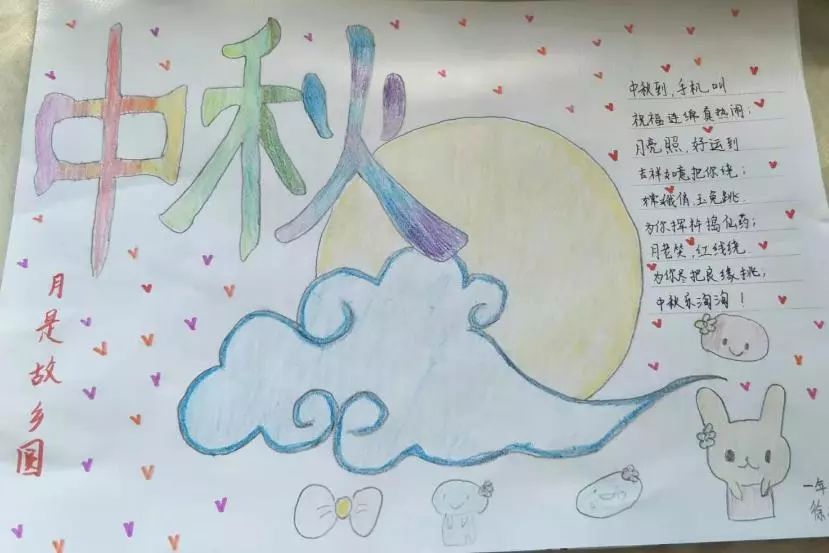 中秋
中秋到,手机叫
祝福连绵真热闹;
月亮照,好运到
吉祥如意把你绕;
嫦娥俏,玉兔跳.
为你挥杵捣仙药;
月老笑,红线绕
为你尽把良缘挑;
中秋乐淘淘!
月是故乡圆
一年
徐